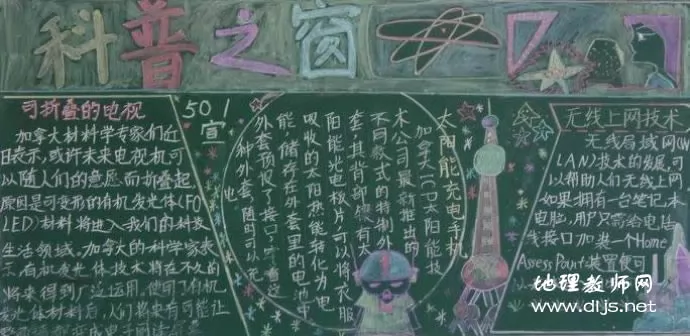 科普之窗
可折叠的电视
加拿大材料学专家们近
日表示,或许未来电视机可
以随人们的意愿而折叠起
原因是可变形的有机发光体(FO
LED)材料将进入我们的科技
生活领域。加拿大的科学家表
示有机发光体技术将在不久的
将来得到广泛运用,他们有机
发光体材料后,人们将来有可能让
501
宣
太阳能充电手机
加拿大ICP太阳能技
术公司最新推出的
不同款式的特制外
套,其背部镶有太
阳能光电板片,可以将衣服
吸收的太阳热能转化为电
能,储存在外套里的电池中
外套预设了接口,穿着这
种外套,随时可以充
电
无线上网技术
无线局域网(W
LAN)技术的发展,可
以帮助人们无线上网
如果拥有一台笔记本
电脑,用户只需给电话
线接口加装一个Home
Assess Point装置便可
地理教师网
www.dljs.net